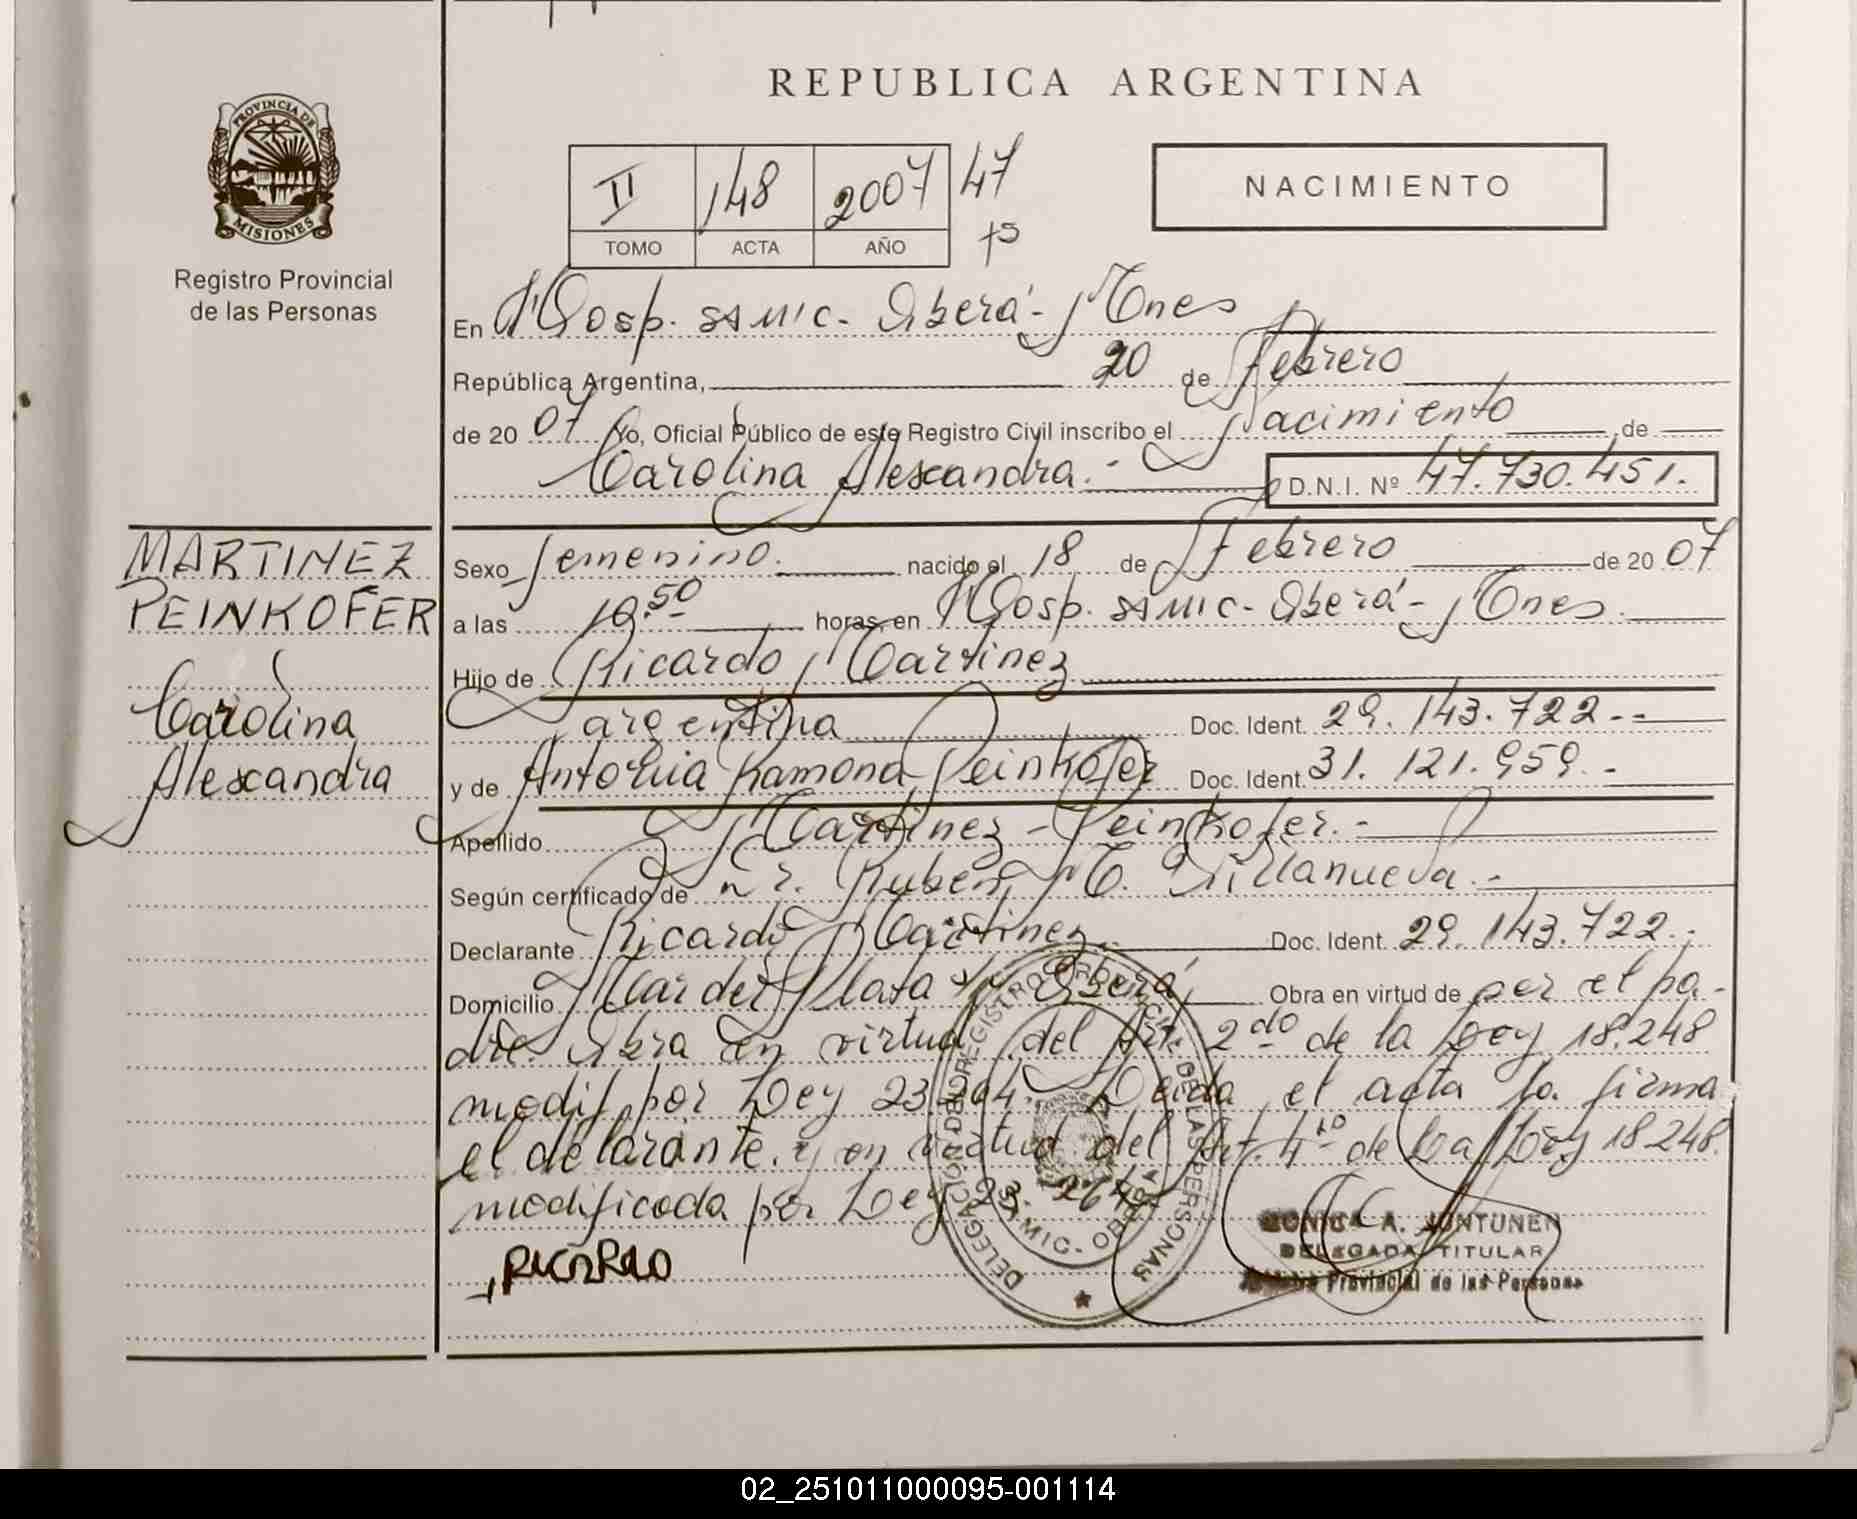 REPUBLICA ARGENTINA
PROVINCIA DE
MISIONES
Registro Provincial
de las Personas
II 148 2007 47
TOMO ACTA AÑO
NACIMIENTO
En Hosp. SAMIC - Oberá - Mnes
República Argentina, 20 de Febrero
de 20 07 Yo, Oficial Público de este Registro Civil inscribo el Nacimiento de
Carolina Alexandra.- D.N.I. Nº 47.730.451.
MARTINEZ
PEINKOFER
Carolina
Alexandra
Sexo femenino. nacido el 18 de Febrero de 20 07
a las horas, en Hosp. SAMIC - Oberá - Mnes.
Hijo de Ricardo Martinez
argentina Doc. Ident. 29.143.722.-
y de Antonia Ramona Peinkofer Doc. Ident. 31.121.959.-
Apellido Martinez - Peinkofer.-
Según certificado de Dr. Ruben M. Villanueva.-
Declarante Ricardo Martinez Doc. Ident. 29.143.722.-
Domicilio Mar del Plata Oberá Obra en virtud de per el pa-
dre. Obra en virtud del Art. 2do de la Ley 18.248
modif por Ley 23.264. Leida el acta la firma
el declarante. y en virtud del Art. 4to de la Ley 18.248.
modificada por Ley 23.264.
RICARDO
DELEGACION DEL REGISTRO PROVINCIAL DE LAS PERSONAS
SAMIC - OBERA
MONICA A. JUNTUNEN
DELEGADA TITULAR
Registro Provincial de las Personas
02_251011000095-001114